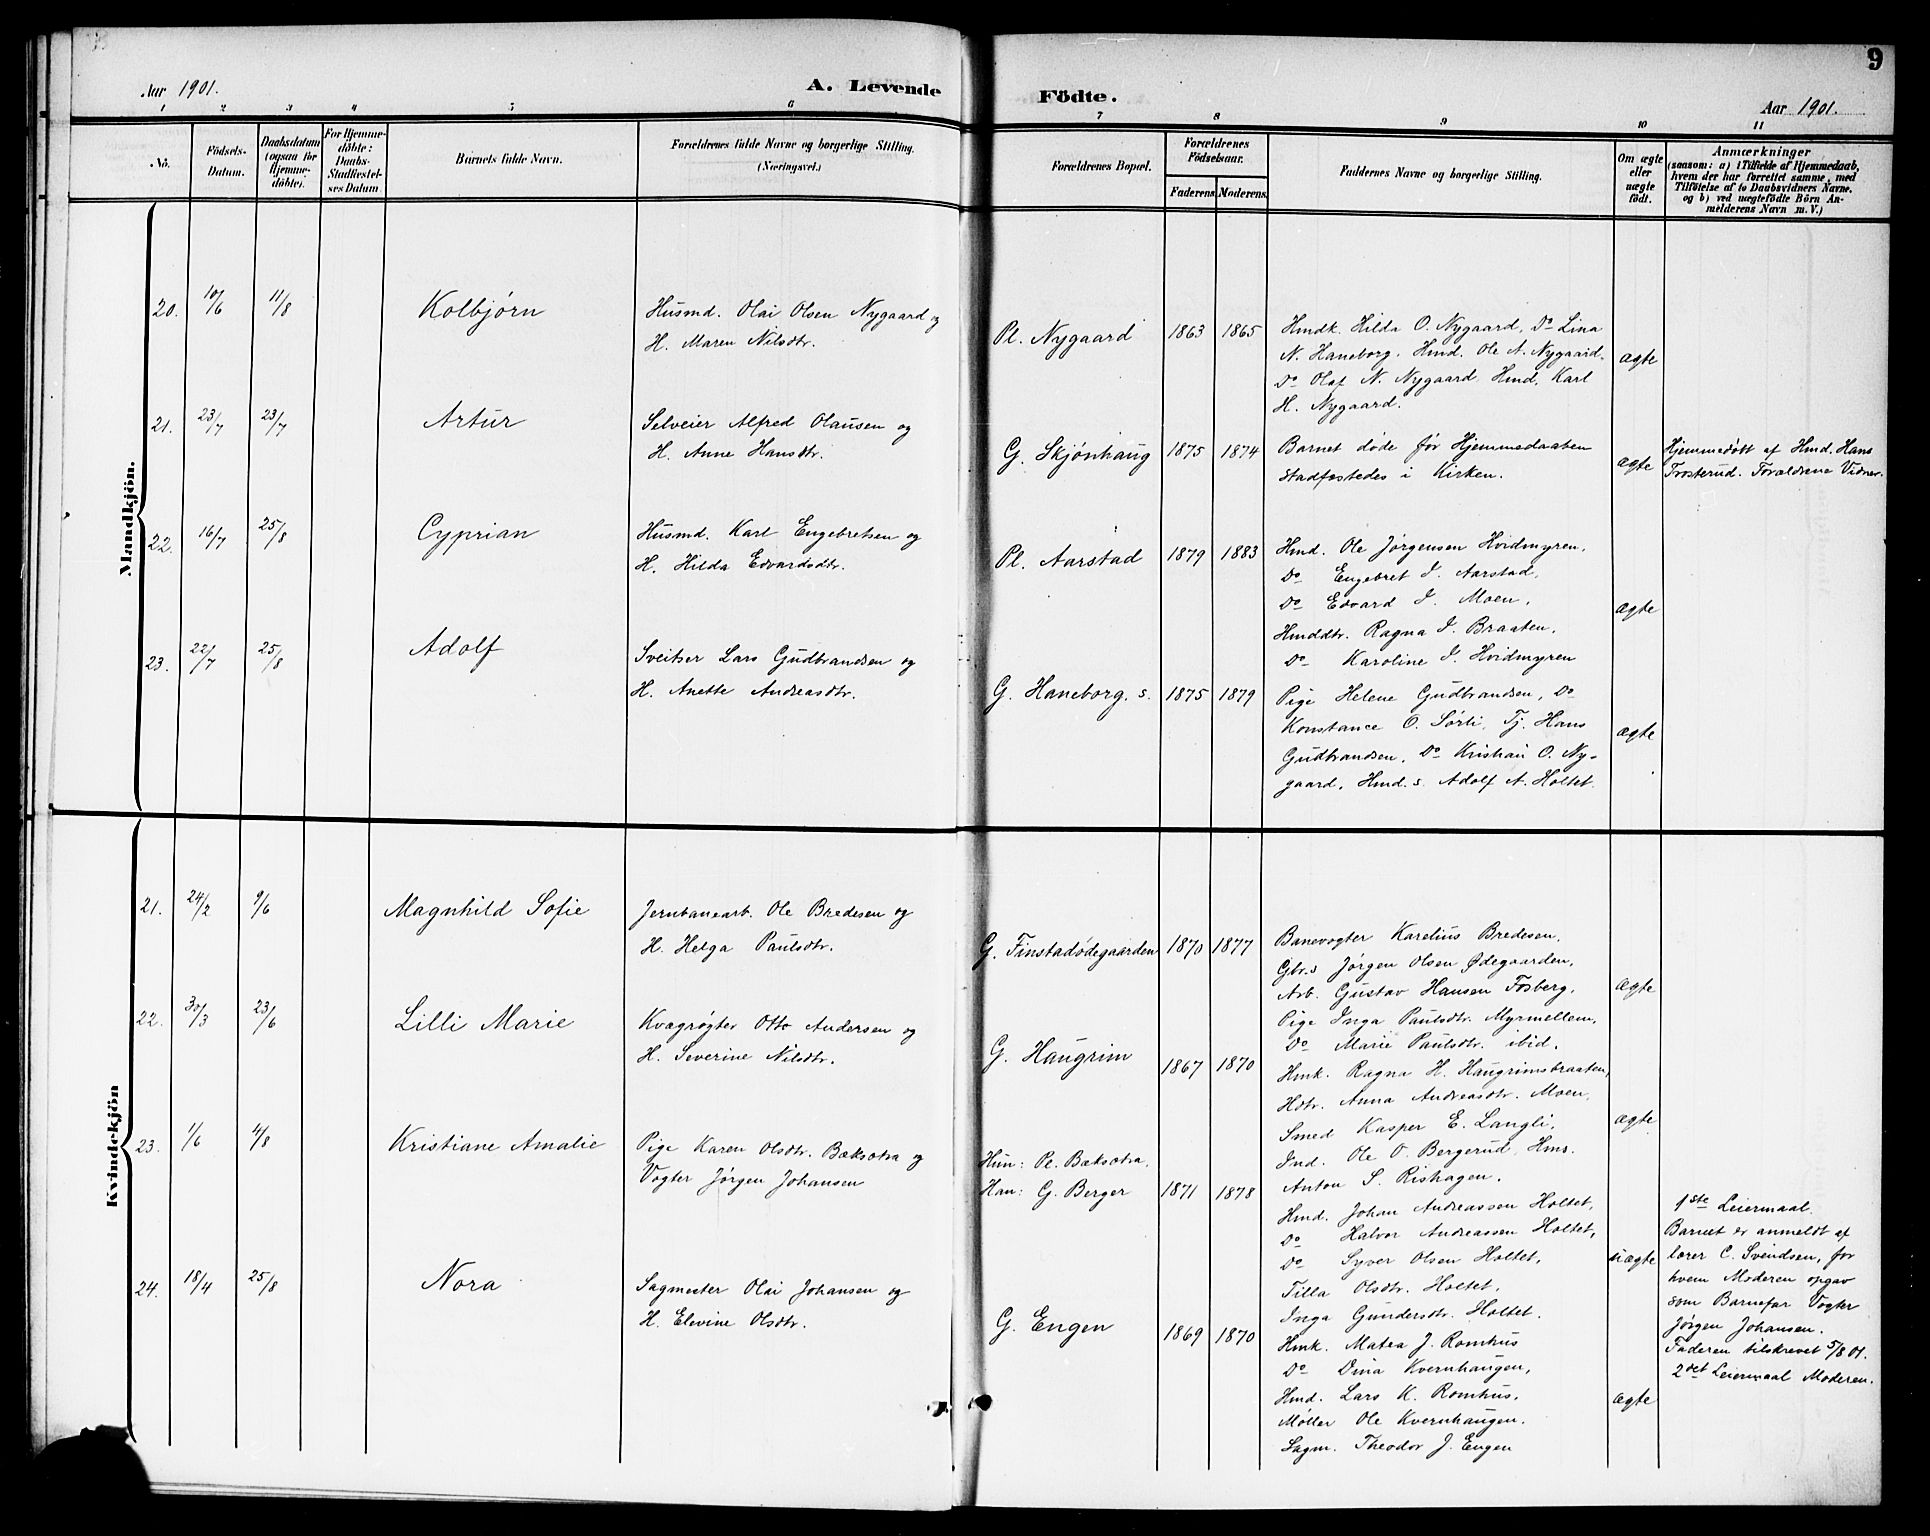 Aar 1901.
A. Levende
Födte.
9
Aar 1901.
1 2 3 4 5 6 7 8 9 10 11
No.
Födsels-
Datum.
Daabsdatum
(ogsaa for
Hjemme-
döbte).
For Hjemme-
döbte:
Daabs-
Stadfæstel-
ses Datum
Barnets fulde Navn.
Forældrenes fulde Navne og borgerlige Stilling.
(Næringsvei.)
Forældrenes Bopæl.
Forældrenes
Födselsaar.
Faderens Moderens.
Faddernes Navne og borgerlige Stilling.
Om ægte
eller
uægte
födt.
Anmærkninger
(saasom: a) i Tilfælde af Hjemmedaab,
hvem der har forrettet samme, med
Tilföielse af to Daabsvidners Navne.
og b) ved uægtefödte Börn An-
melderens Navn m. V.)
Mandkjön.
20. 10/6 11/8 Kolbjørn
Husmd. Olai Olsen Nygaard og
H. Maren Nilsdtr.
Pl. Nygaard 1863 1865
Hmdk. Hilda O. Nygaard, Do Lina
N. Haneborg. Hmd. Ole A. Nygaard.
Do Olaf N. Nygaard Hmd. Karl
H. Nygaard.
ægte
21. 23/7 23/7 Artur
Selveier Alfred Olausen og
H. Anne Hansdtr.
G. Skjønhaug 1875 1874
Barnet døde før Hjemmedaaben
stadfæstedes i Kirken.
ægte
Hjemmedøbt af Hmd. Hans
Trosterud. Forældrene Vidner.
22. 16/7 25/8 Cyprian
Husmd. Karl Engebretsen og
H. Hilda Edvardsdtr.
Pl. Aarstad 1879 1883
Hmd. Ole Jørgensen Hvidmyren.
Do Engebret J. Aarstad,
Do Edvard J. Moen,
Hmddtr. Ragna J. Braaten,
Do Karoline J. Hvidmyren
ægte
23. 22/7 25/8 Adolf
Sveitser Lars Gudbrandsen og
H. Anette Andreasdtr.
G. Haneborg. s. 1875 1879
Pige Helene Gudbrandsen, Do
Konstance O. Sørli, Tj. Hans
Gudbrandsen, Do Kristian O. Ny-
gaard, Hmd. s. Adolf A. Holtet.
ægte
Kvindekjön
21. 24/2 9/6 Magnhild Sofie
Jernbanearb. Ole Bredesen og
H. Helga Paulsdtr.
G. Finstadødegaarden 1870 1877
Banevogter Karelius Bredesen,
Gbr.s Jørgen Olsen Ødegaarden,
Arb. Gustav Hansen Fosberg,
Pige Inga Paulsdtr. Myrmellem,
Do Marie Paulsdtr. ibid.
ægte
22. 30/3 23/6 Lilli Marie
Kvægrøgter Otto Andersen og
H. Severine Nilsdtr.
G. Haugrim 1867 1870
Hmk. Ragna H. Haugrimsbraaten,
Hdtr. Anna Andreasdtr. Moen,
Smed Kasper E. Langli,
Ind. Ole O. Bergerud, Hms.
Anton S. Rishagen.
ægte
23. 1/6 4/8 Kristiane Amalie
Pige Karen Olsdtr. Bæksætra og
Vogter Jørgen Johansen
Hun: Pl. Bæksætra,
Han: G. Berger 1871 1878
Hmd. Johan Andreassen Holtet,
Do Halvor Andreassen Holtet,
Do Syver Olsen Holtet,
Tilla Olsdtr. Holtet,
Inga Gundersdtr. Holtet.
uægte
1ste Leiermaal.
Barnet er anmeldt af
lærer C. Svendsen, for
hvem Moderen opgav
som Barnefar Vogter
Jørgen Johansen.
Faderen tilskrevet 5/8 01.
2det Leiermaal Moderen.
24. 18/4 25/8 Nora
Sagmester Olai Johansen og
H. Elevine Olsdtr.
G. Engen 1869 1870
Hmk. Matea J. Romhus
Do Dina Kvernhaugen,
Hmd. Lars K. Romhus.
Møller Ole Kvernhaugen.
Sagm. Theodor J. Engen
ægte